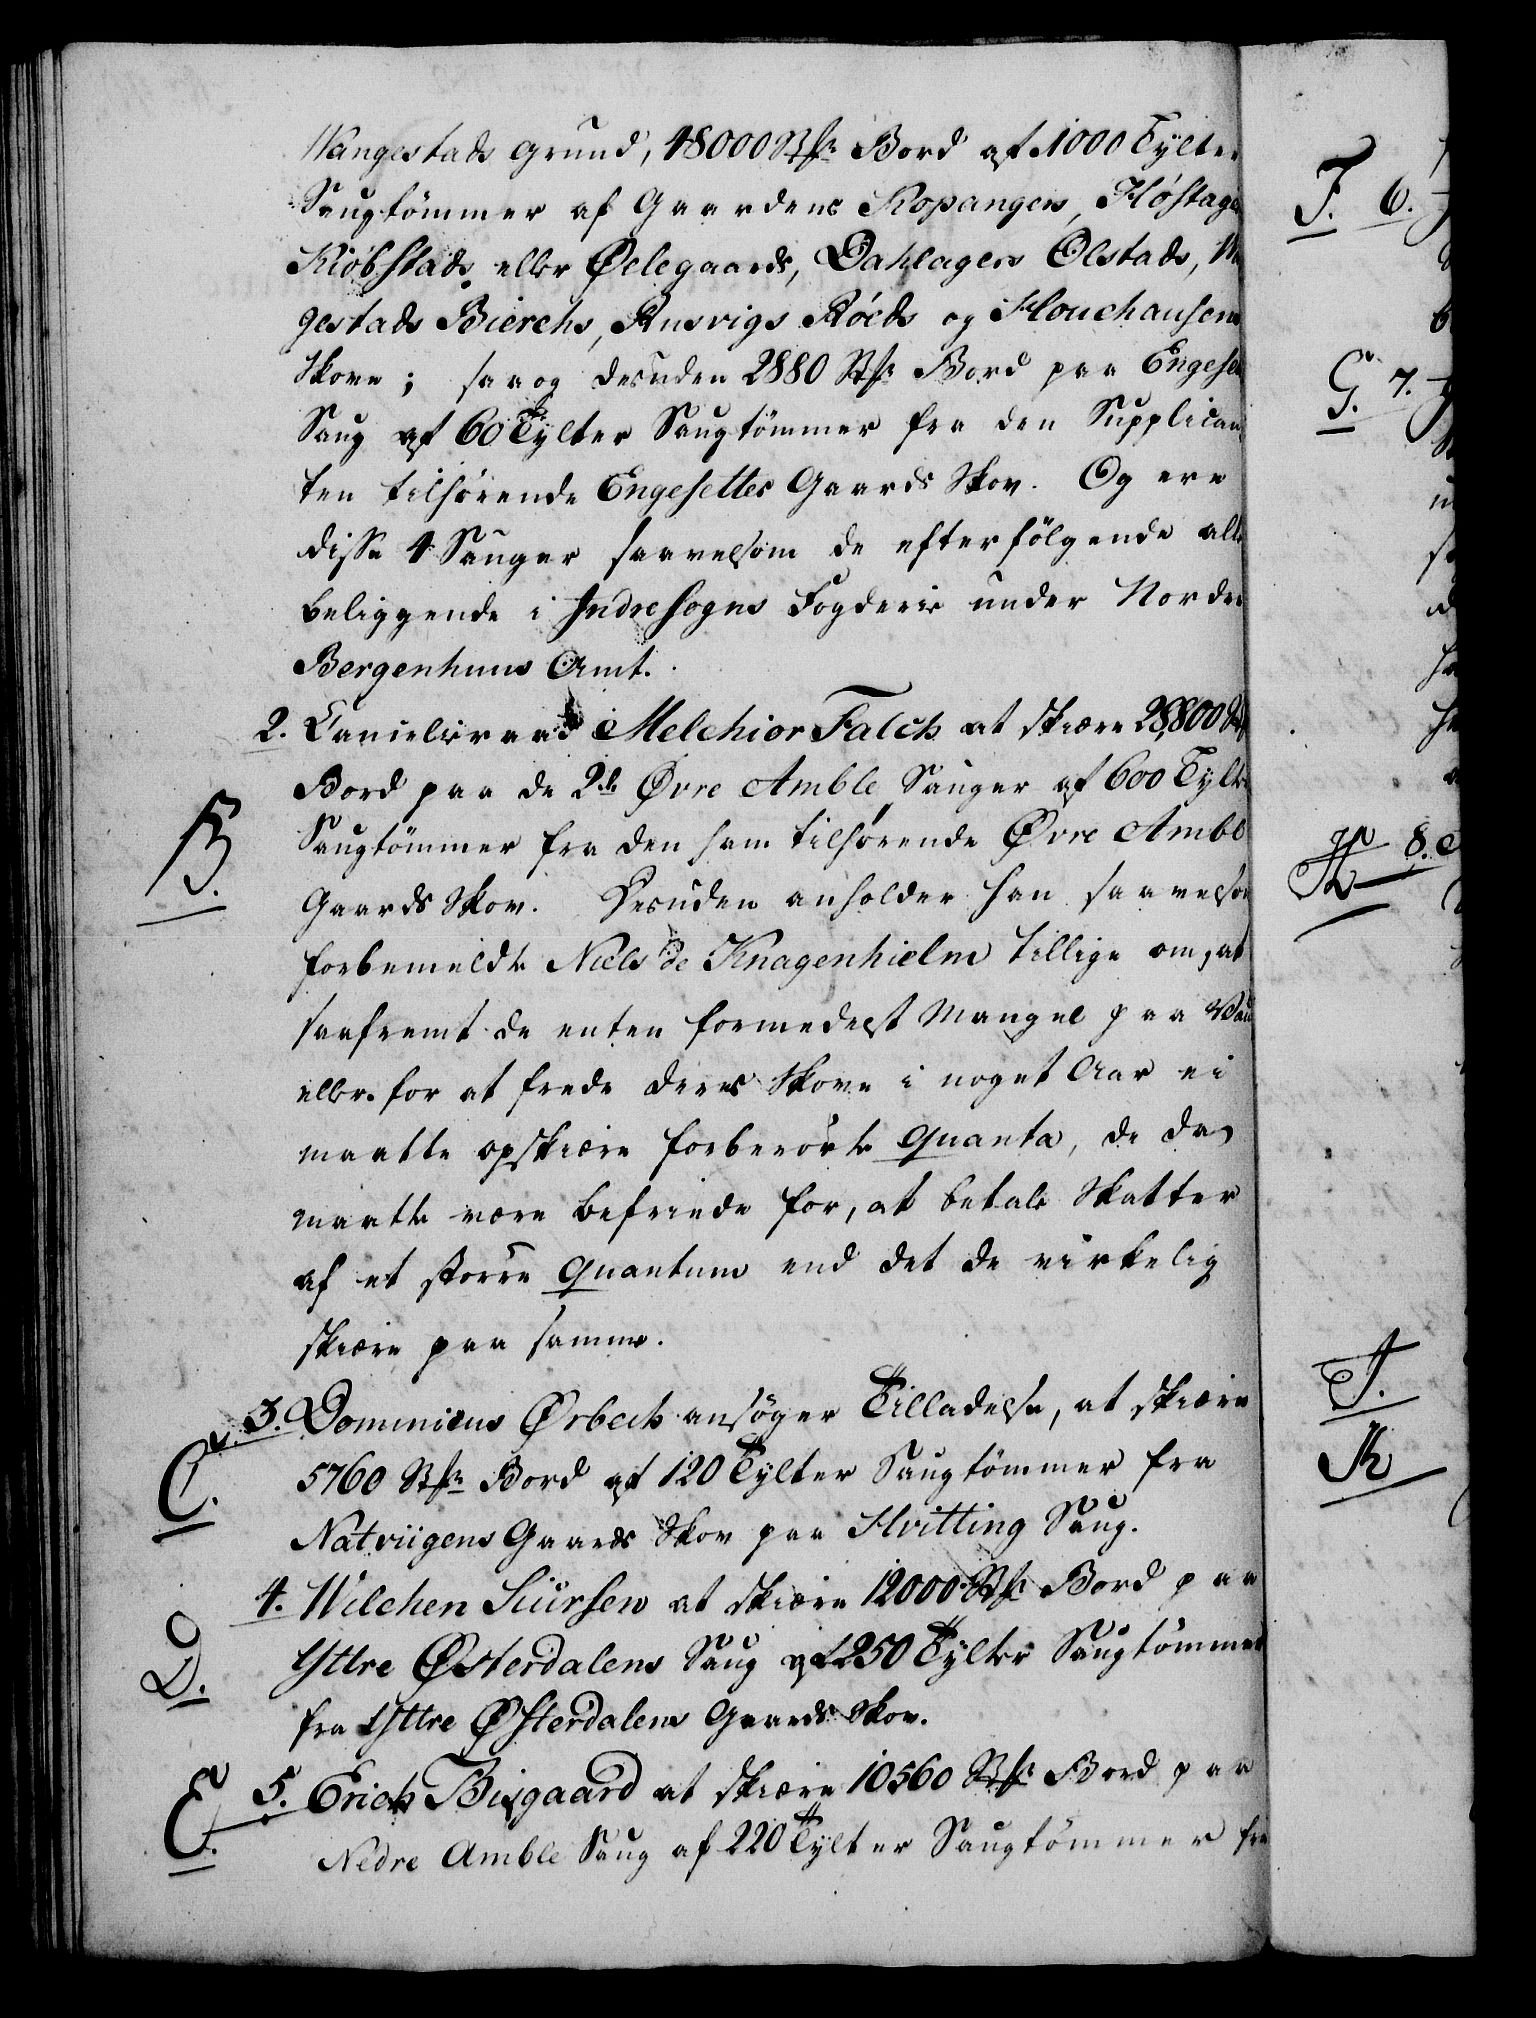 Wangestads Grund, 48000 Stk: Bord af 1000 Tylter
Saugtömmer af Gaardene Kopangens, Fløstage
Kiöbstads eller Ødegaards, Dahlagers Olstads,
gestads Bierchs, Rusvigs Röeds og Flouchausens
Skove; saa og desuden 2880 Stk: Bord paa Engeset
Saug af 60 Tylter Saugtömmer fra den Supplican
ten tilhörende Engesetter Gaards Skov. Og ere
disse 4 Sauger saavelsom de efterfölgende alle
beliggende i Indresogns Fogderie under Nordre
Bergenhuus Amt.
2. Cancelieraad Melchior Falch at skiære 28,800 Stk
Bord paa de 2de Øvre Amble Sauger af 600 Tylter
B. Saugtömmer fra den ham tilhörende Øvre Amble
Gaards Skov. Desuden anholder han saavelsom
forbemeldte Niels de Knagenhielm tillige om, at
saafremt de enten formedelst Mangel paa Van
eller for at frede deres Skove i noget Aar ei
maatte opskiære forberörte Quanta, de da
maatte være befriede for, at betale Skatter
af et större Quantum end det de virkelig
skiære paa samme.
C. 3. Dominicus Ørbech ansöger Tilladelse, at skiære
5760 Stk: Bord af 120 Tylter Saugtömmer fra
Natviigens Gaards Skov paa Hvitting Saug.
D. 4. Wilchen Siursen at skiære 12000 Stk: Bord paa
Yttre Østerdalens Saug af 250 Tylter Saugtömmer
fra Yttre Østerdalens Gaards Skov.
E. 5. Erich Bisgaard at skiære 10560 Stk: Bord paa
Nedre Amble Saug af 220 Tylter Saugtömmer fra
F. 6.
G. 7.
H. 8.
I.
K